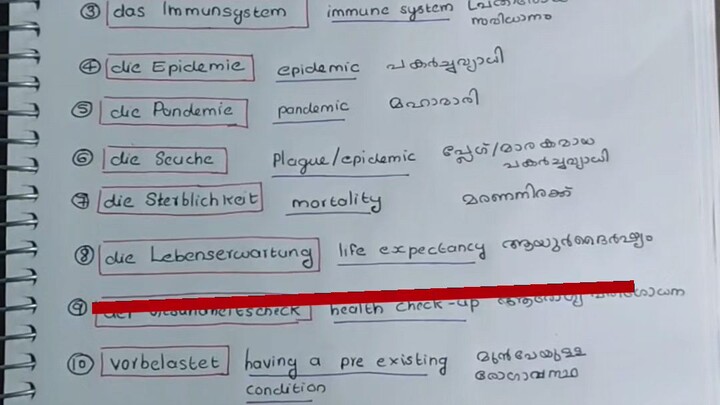 ③ das Immunsystem immune system
സംവിധാനം
④ die Epidemie epidemic പകർച്ചവ്യാധി
⑤ die Pandemie pandemic മഹാമാരി
⑥ die Seuche Plague/epidemic പ്ലേഗ്/മാരകമായ
പകർച്ചവ്യാധി
⑦ die Sterblichkeit mortality മരണനിരക്ക്
⑧ die Lebenserwartung life expectancy ആയുർദൈർഘ്യം
⑨ health check-up
⑩ vorbelastet having a pre existing മുൻപേയുള്ള
condition രോഗാവസ്ഥ